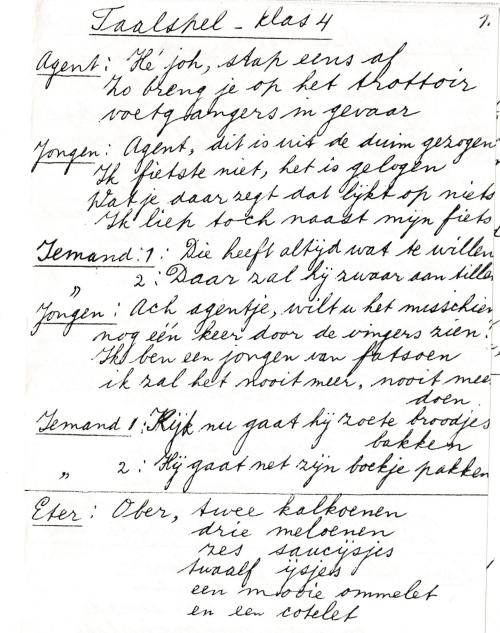 Taalspel - klas 4 1.
Agent: Hé joh, stap eens af
Zo breng je op het trottoir
voetgangers in gevaar
Jongen: Agent, dit is uit de duim gezogen
Ik fietste niet, het is gelogen
Wat je daar zegt dat lijkt op niets
Ik liep toch naast mijn fiets
Iemand: 1: Die heeft altijd wat te willen
" 2: Daar zal hij zwaar aan tille
Jongen: Ach agentje, wilt u het misschien
nog één keer door de vingers zien?
Ik ben een jongen van fatsoen
ik zal het nooit meer, nooit mee
doen
Iemand 1: Kijk nu gaat hij zoete broodjes
bakken
" 2: Hij gaat net zijn boekje pakken
Eter: Ober, twee kalkoenen
drie meloenen
zes saucijsjes
twaalf ijsjes
een mooie ommelet
en een cotelet